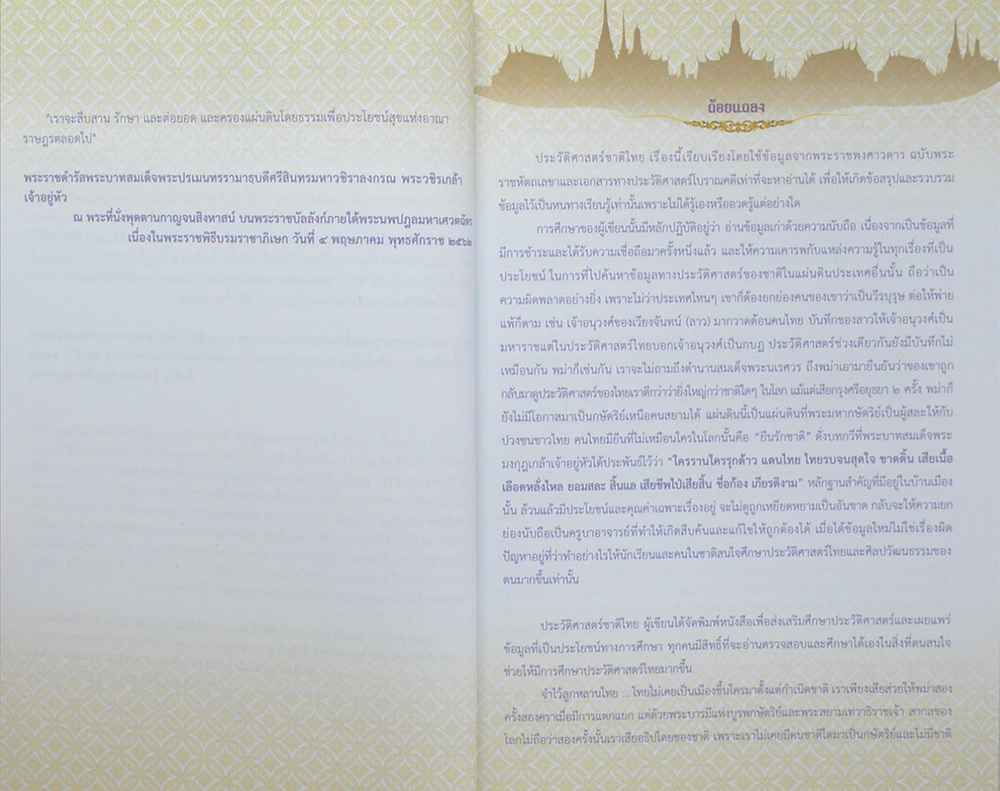 "เราจะสืบสาน รักษา และต่อยอด และครองแผ่นดินโดยธรรมเพื่อประโยชน์สุขแห่งอาณา
ราษฎรตลอดไป"
พระราชดำรัสพระบาทสมเด็จพระปรเมนทรรามาธิบดีศรีสินทรมหาวชิราลงกรณ พระวชิรเกล้า
เจ้าอยู่หัว
ณ พระที่นั่งพุดตานกาญจนสิงหาสน์ บนพระราชบัลลังก์ภายใต้พระนพปฎลมหาเศวตฉัตร
เนื่องในพระราชพิธีบรมราชาภิเษก วันที่ ๔ พฤษภาคม พุทธศักราช ๒๕๖๒
ถ้อยแถลง
ประวัติศาสตร์ชาติไทย เรื่องนี้เรียบเรียงโดยใช้ข้อมูลจากพระราชพงศาวดาร ฉบับพระ
ราชหัตถเลขาและเอกสารทางประวัติศาสตร์โบราณคดีเท่าที่จะหาอ่านได้ เพื่อให้เกิดข้อสรุปและรวบรวม
ข้อมูลไว้เป็นหนทางเรียนรู้เท่านั้นเพราะไม่ได้รู้เองหรืออวดรู้แต่อย่างใด
การศึกษาของผู้เขียนนั้นมีหลักปฏิบัติอยู่ว่า อ่านข้อมูลเก่าด้วยความนับถือ เนื่องจากเป็นข้อมูลที่
มีการชำระและได้รับความเชื่อถือมาครั้งหนึ่งแล้ว และให้ความเคารพกับแหล่งความรู้ในทุกเรื่องที่เป็น
ประโยชน์ ในการที่ไปค้นหาข้อมูลทางประวัติศาสตร์ของชาติในแผ่นดินประเทศอื่นนั้น ถือว่าเป็น
ความผิดพลาดอย่างยิ่ง เพราะไม่ว่าประเทศไหนๆ เขาก็ต้องยกย่องคนของเขาว่าเป็นวีรบุรุษ ต่อให้พ่าย
แพ้ก็ตาม เช่น เจ้าอนุวงศ์ของเวียงจันทน์ (ลาว) มากวาดต้อนคนไทย บันทึกของลาวให้เจ้าอนุวงศ์เป็น
มหาราชแต่ในประวัติศาสตร์ไทยบอกเจ้าอนุวงศ์เป็นกบฏ ประวัติศาสตร์ช่วงเดียวกันยังมีบันทึกไม่
เหมือนกัน พม่าก็เช่นกัน เราจะไม่ถามถึงตำนานสมเด็จพระนเรศวร ถึงพม่าเอามายืนยันว่าของเขาถูก
กลับมาดูประวัติศาสตร์ของไทยเราดีกว่าว่ายิ่งใหญ่กว่าชาติใดๆ ในโลก แม้แต่เสียกรุงศรีอยุธยา ๒ ครั้ง พม่าก็
ยังไม่มีโอกาสมาเป็นกษัตริย์เหนือคนสยามได้ แผ่นดินนี้เป็นแผ่นดินที่พระมหากษัตริย์เป็นผู้สละให้กับ
ปวงชนชาวไทย คนไทยมียีนที่ไม่เหมือนใครในโลกนั้นคือ "ยีนรักชาติ" ดั่งบทกวีที่พระบาทสมเด็จพระ
มงกุฎเกล้าเจ้าอยู่หัวได้ประพันธ์ไว้ว่า "ใครรานใครรุกด้าว แดนไทย ไทยรบจนสุดใจ ขาดดิ้น เสียเนื้อ
เลือดหลั่งไหล ยอมสละ สิ้นแล เสียชีพไป่เสียสิ้น ชื่อก้อง เกียรติงาม" หลักฐานสำคัญที่มีอยู่ในบ้านเมือง
นั้น ล้วนแล้วมีประโยชน์และคุณค่าเฉพาะเรื่องอยู่ จะไม่ดูถูกเหยียดหยามเป็นอันขาด กลับจะให้ความยก
ย่องนับถือเป็นครูบาอาจารย์ที่ทำให้เกิดสืบค้นและแก้ไขให้ถูกต้องได้ เมื่อได้ข้อมูลใหม่ไม่ใช่เรื่องผิด
ปัญหาอยู่ที่ว่าทำอย่างไรให้นักเรียนและคนในชาติสนใจศึกษาประวัติศาสตร์ไทยและศิลปวัฒนธรรมของ
ตนมากขึ้นเท่านั้น
ประวัติศาสตร์ชาติไทย ผู้เขียนได้จัดพิมพ์หนังสือเพื่อส่งเสริมศึกษาประวัติศาสตร์และเผยแพร่
ข้อมูลที่เป็นประโยชน์ทางการศึกษา ทุกคนมีสิทธิ์ที่จะอ่านตรวจสอบและศึกษาได้เองในสิ่งที่ตนสนใจ
ช่วยให้มีการศึกษาประวัติศาสตร์ไทยมากขึ้น
จำไว้ลูกหลานไทย ... ไทยไม่เคยเป็นเมืองขึ้นใครมาตั้งแต่กำเนิดชาติ เราเพียงเสียส่วยให้พม่าสอง
ครั้งสองคราเมื่อมีการแตกแยก แต่ด้วยพระบารมีแห่งบูรพกษัตริย์และพระสยามเทวาธิราชเจ้า สากลของ
โลกไม่ถือว่าสองครั้งนั้นเราเสียอธิปไตยของชาติ เพราะเราไม่เคยมีคนชาติใดมาเป็นกษัตริย์และไม่มีชาติ